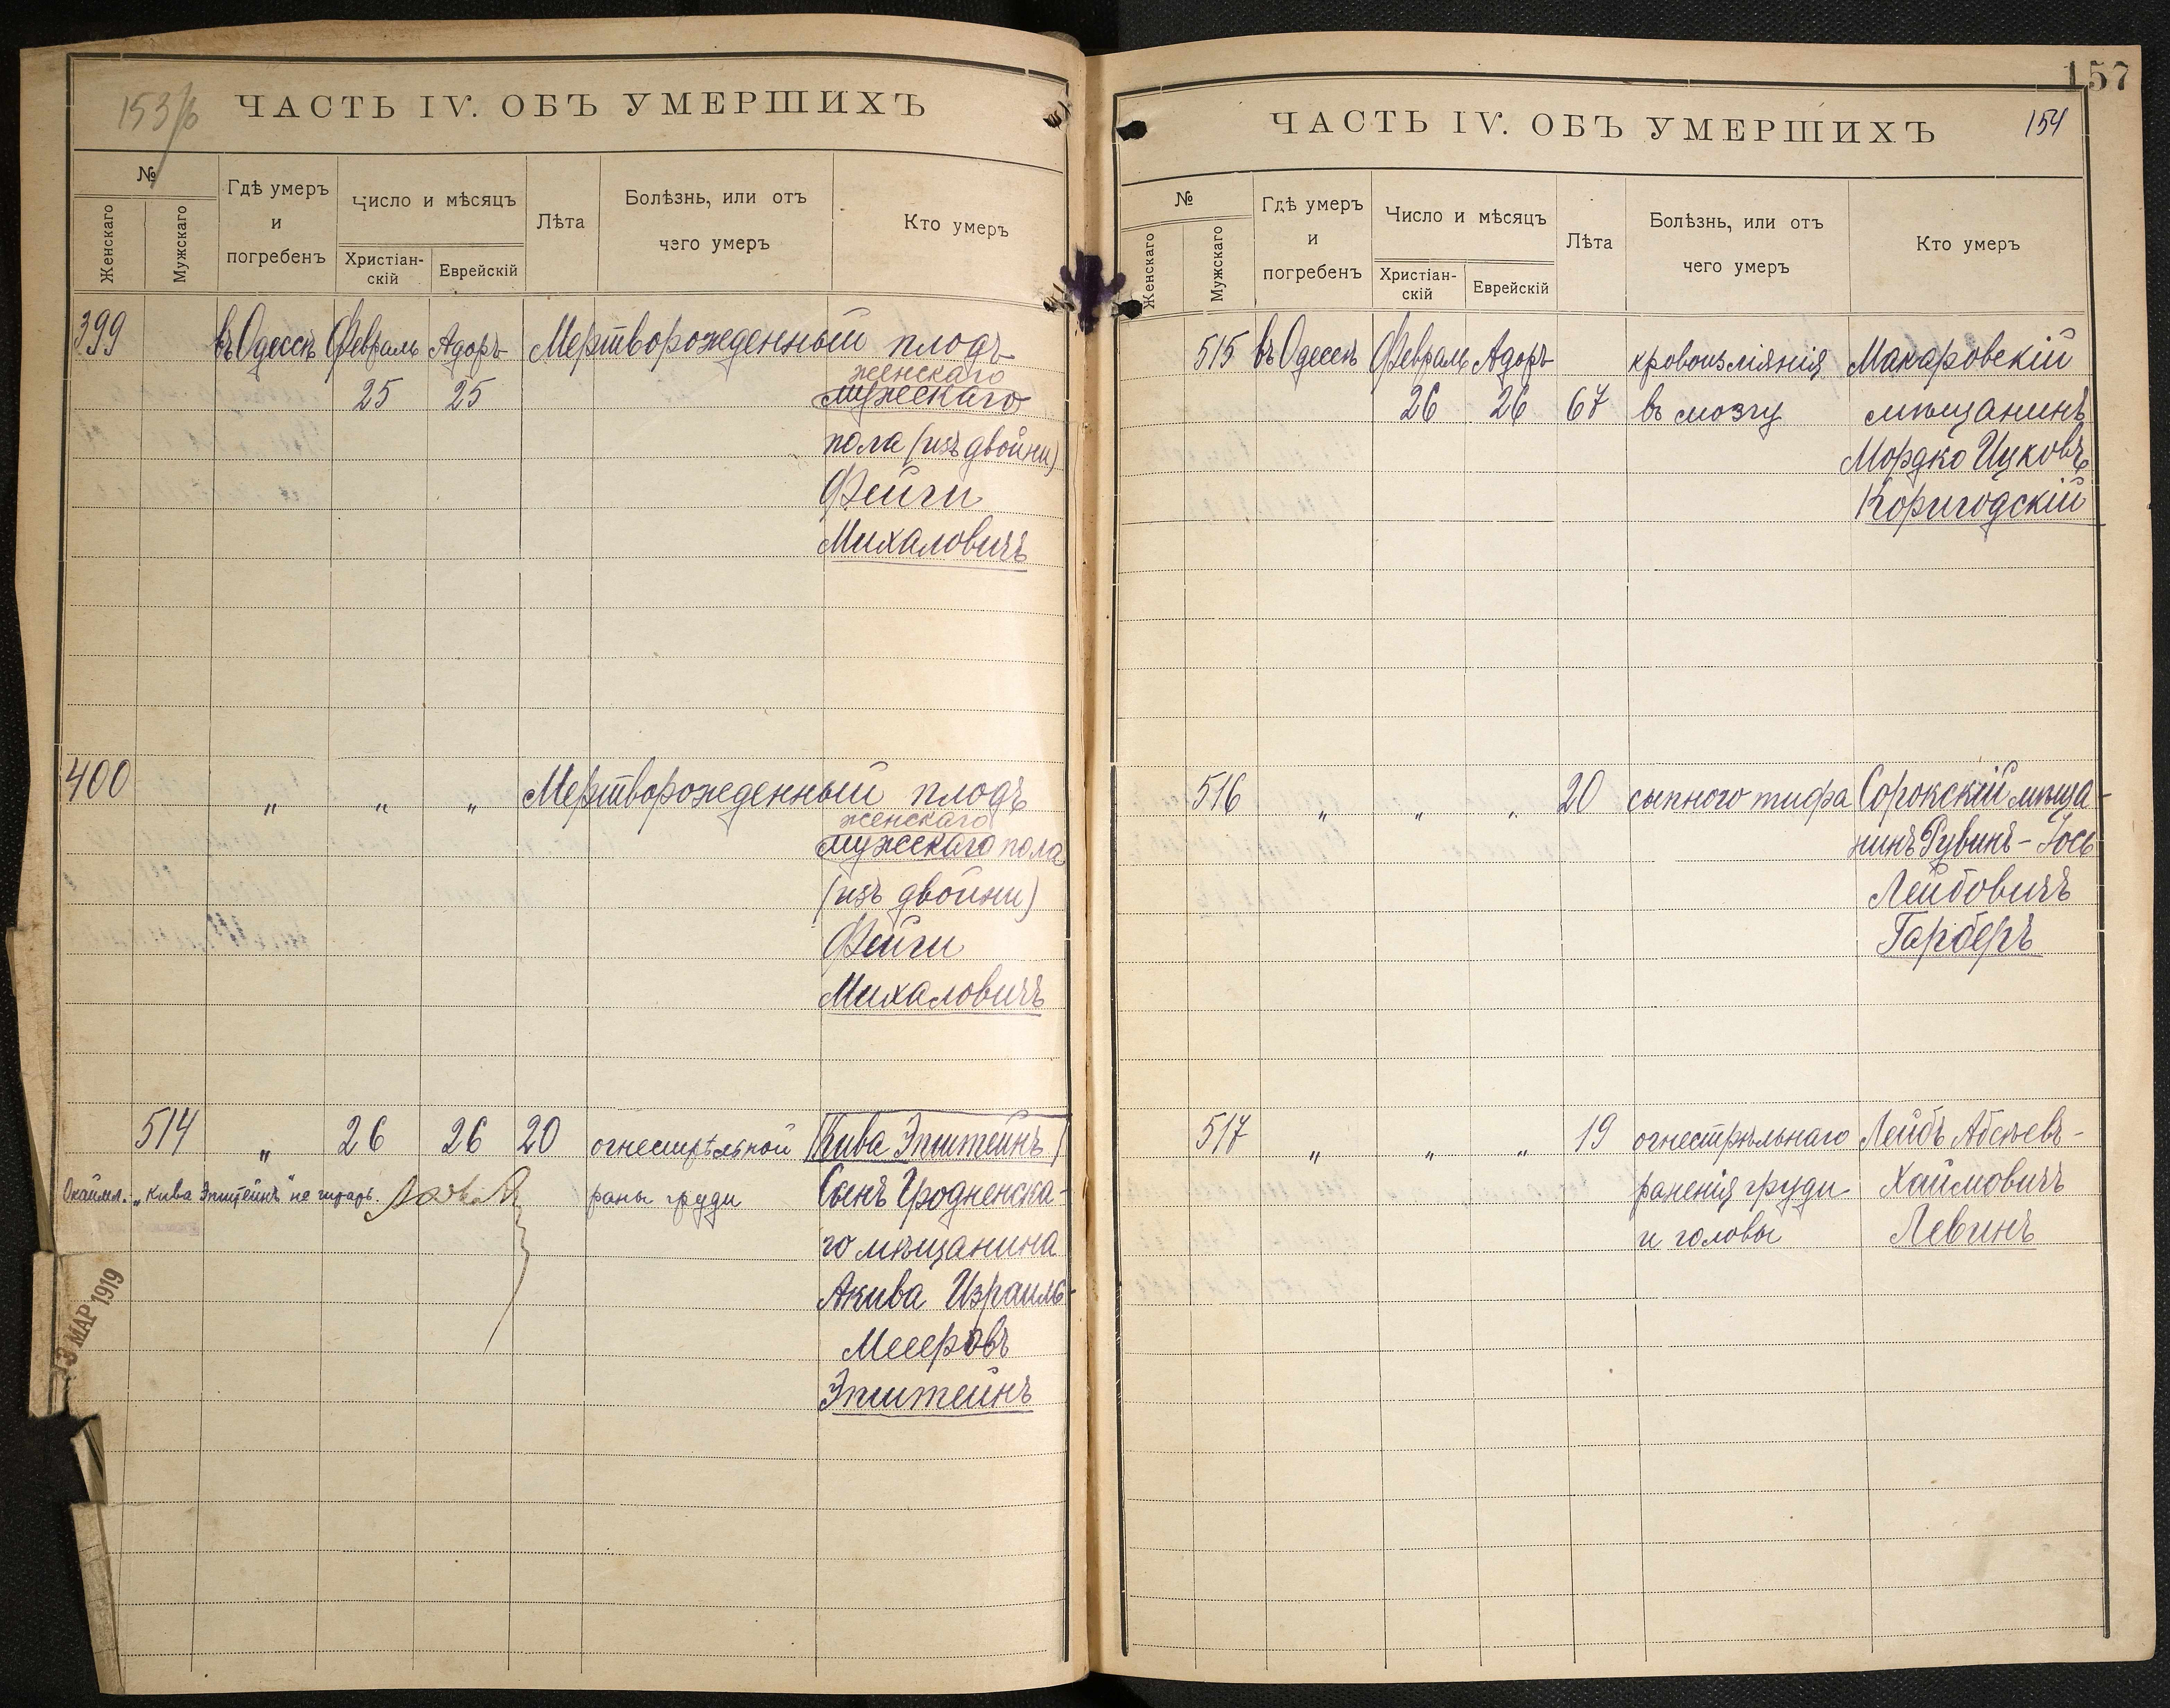 153/b
ЧАСТЬ IV. ОБЪ УМЕРШИХЪ
№
Женскаго
Мужскаго
Гдѣ умеръ
и
погребенъ
Число и мѣсяцъ
Христіан-
скій
Еврейскій
Лѣта
Болѣзнь, или отъ
чего умеръ
Кто умеръ
399 въ Одессѣ Февраль Адоръ Мертворожденный плодъ
женскаго
25 25 мужескаго
пола (изъ двойни)
Фейги
Михаловичъ
400 " " " Мертворожденный плодъ
женскаго
мужескаго пола
(изъ двойни)
Фейги
Михаловичъ
514 " 26 26 20 огнестрѣльной Кива Эпштейнъ
Окаймл. „Кива Эпштейнъ" не читать. раны груди Сынъ Гродненска-
го мѣщанина
Акива Израиль-
Мееровъ
Эпштейнъ
3 МАР 1919
157
ЧАСТЬ IV. ОБЪ УМЕРШИХЪ
154
№
Женскаго
Мужскаго
Гдѣ умеръ
и
погребенъ
Число и мѣсяцъ
Христіан-
скій
Еврейскій
Лѣта
Болѣзнь, или отъ
чего умеръ
Кто умеръ
515 въ Одессѣ Февраль Адоръ кровоизліянія Макаровскій
26 26 67 въ мозгу мѣщанинъ
Мордко Ицковъ
Коригодскій
516 " " " 20 сыпного тифа Сорокскій мѣща-
нинъ Рувинъ-Іось
Лейбовичъ
Гарберъ
517 " " " 19 огнестрѣльнаго Лейбъ Абелевъ-
раненія груди Хаимовичъ
и головы Левинъ